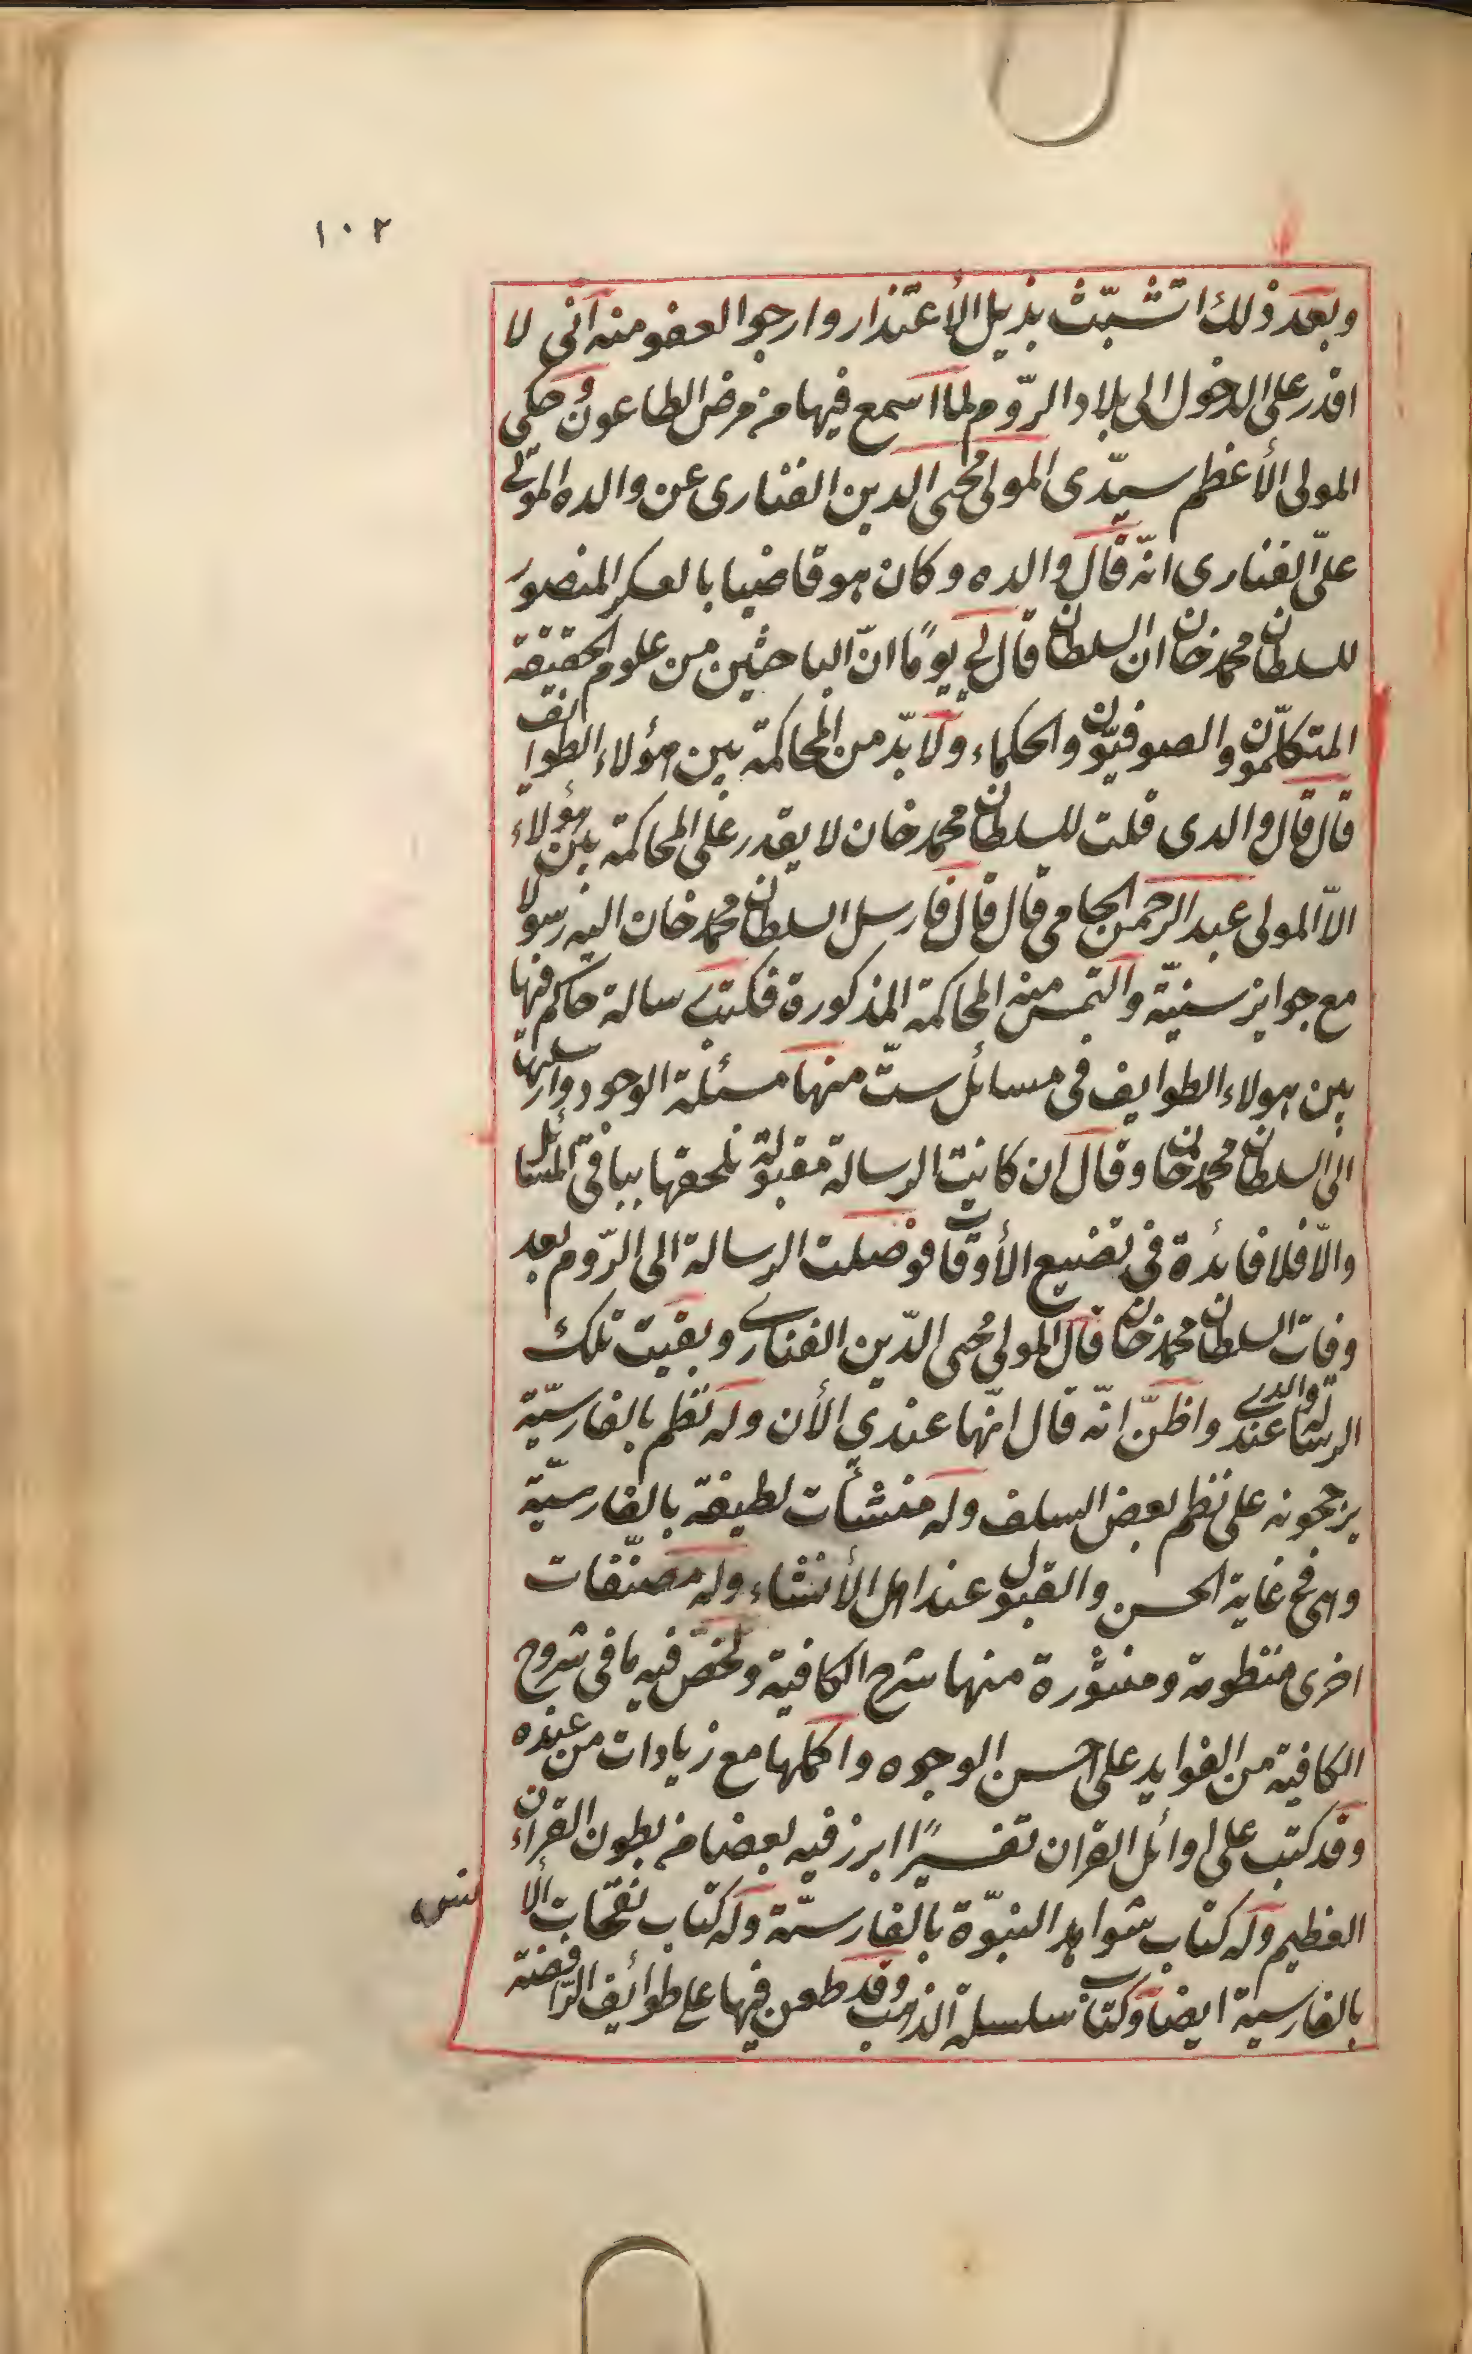 ١٠٢
وبعد ذلك اتشبّث بذيل الأعتذار وارجوا العفو منه انى لا
اقدر على الدخول الى بلاد الرّوم لما اسمع فيها من مرض الطاعون وحكى
المولى الأعظم سيّدى المولى محيى الدين الفنارى عن والده المولى
علىّ الفنارى انّه قال والده وكان هو قاضيا بالعسكر المنصور
للسلطان محمد خان ان السلطان قال لى يومًا انّ الباحثين من علوم الحقيقة
المتكلّمون والصوفيّون والحكماء ولا بدّ من المحاكمة بين هؤلاء الطوائف
قال قال والدى قلت للسلطان محمد خان لا يقدر على المحاكمة بين هؤلاء
الاّ المولى عبد الرحمن الجامى قال قال فارسل السلطان محمد خان اليه رسولا
مع جوايز سنيّة والتمس منه المحاكمة المذكورة فكتب رسالة حاكم فيها
بين هولاء الطوايف فى مسائل ستّ منها مسئلة الوجود وارسلها
الى السلطان محمد خان وقال ان كانت الرسالة مقبولة نلحقها بباقى المسائل
والاّ فلا فائدة فى تضييع الأوقات فوصلت الرسالة الى الرّوم بعد
وفات السلطان محمد خان قال المولى محيى الدّين الفنارى وبقيت تلك
الرسالة عند والدى واظنّ انّه قال انّها عندي الأن وله نظم بالفارسيّة
يرجحونه على نظم بعض السلف وله منشأت لطيفة بالفارسيّة
وهى فى غاية الحسن والقبول عند اهل الأنشاء وله مصنّفات
اخرى منظومة ومنثورة منها شرح الكافية ولخّص فيه ما فى شروح
الكافية من الفوايد على احسن الوجوه واكملها مع زيادات من عنده
وقد كتب على اوائل القران تفسيرًا ابرز فيه بعضا من بطون القرآن
العظيم وله كتاب شواهد النبوّة بالفارسيّة وله كتاب نفحات الأ
نس
بالفارسية ايضا وكتاب سلسلة الذهب وقد طعن فيها على طوائف الرّافضة